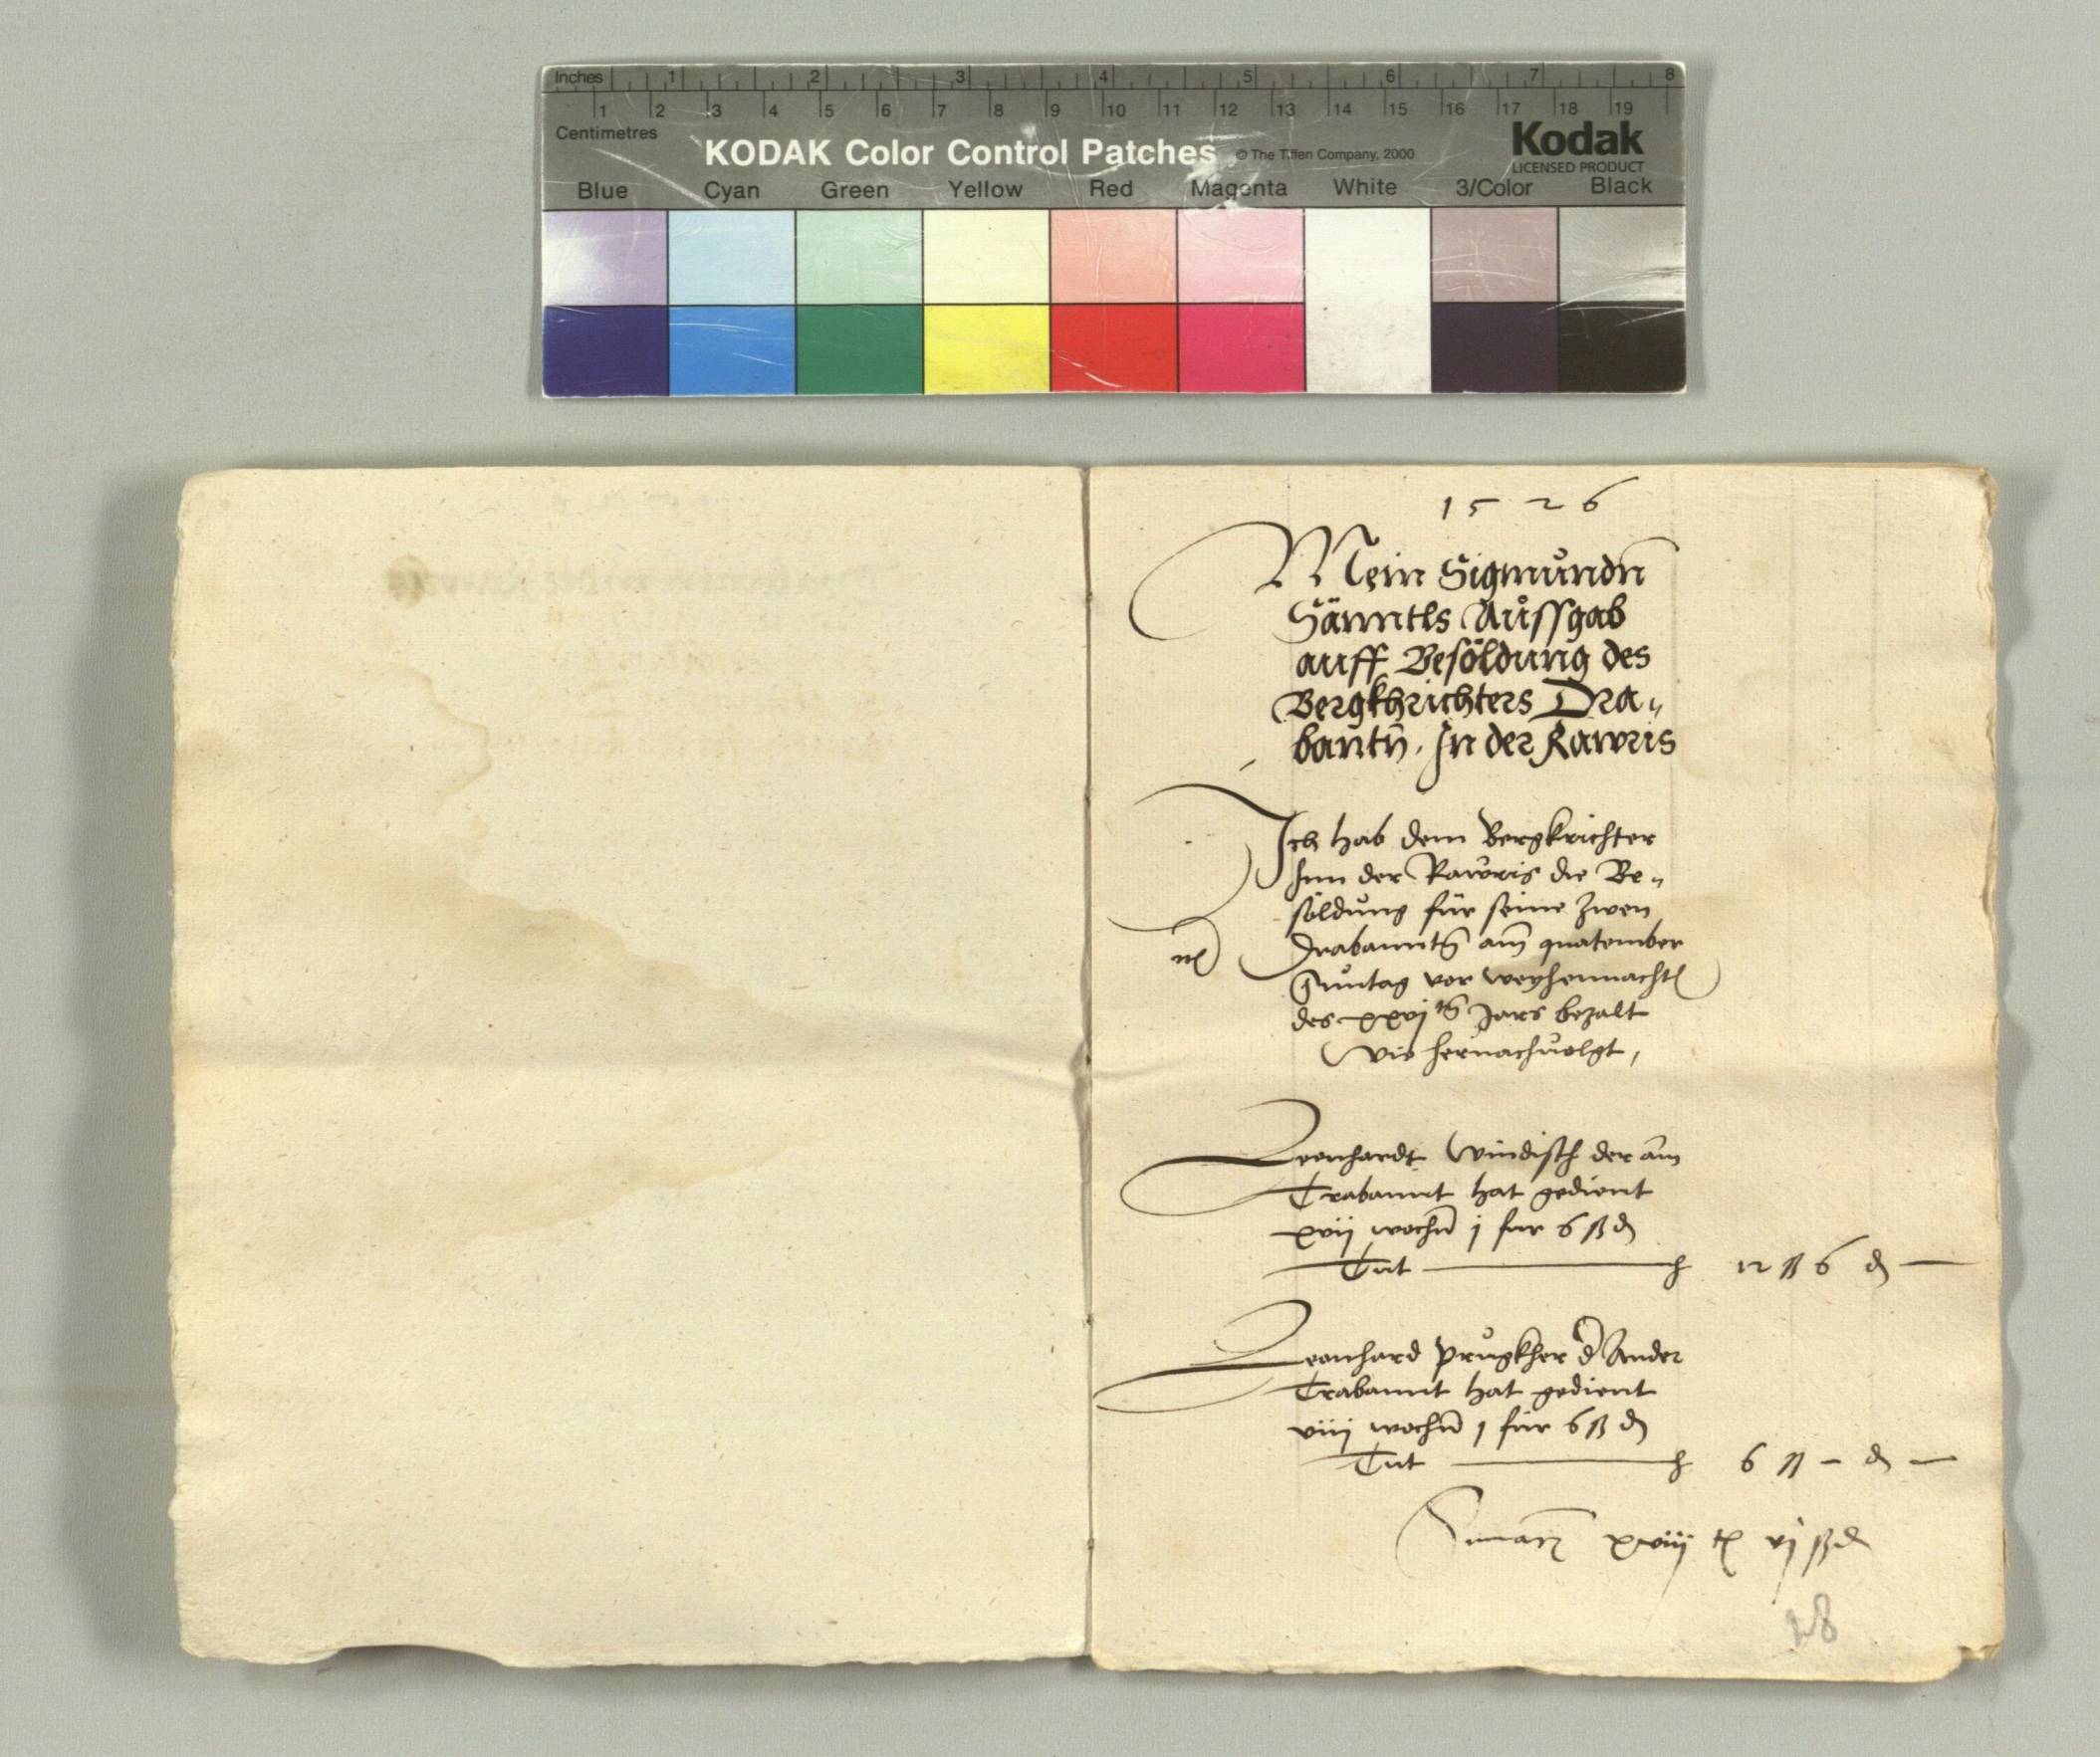 Inches 1 2 3 4 5 6 7 8
1 2 3 4 5 6 7 8 9 10 11 12 13 14 15 16 17 18 19
Centimetres
KODAK Color Control Patches © The Tiffen Company, 2000 Kodak
LICENSED PRODUCT
Blue Cyan Green Yellow Red Magenta White 3/Color Black
1526
Mein Sigmůndn̄
Sänntls Aůssgab
auff Besöldung des
Bergkhrichters Dra„
bantn̄. In der Rawris
Ich hab dem Bergkrichter
Inn der Rawris die Be„
söldůng für seine zwen
Drabanntn̄ am̄ quatember
Suntag vor weyhennacht
des xxvj tn̄ Jars bezalt
wie hernachůolgt,
Leonhardt Windisch der ain
Trabannt hat gedient
xvij wochn̄ j fur 6 ß d
Tut 12 6 d
Leonhard Průgkher d Ander
Trabannt hat gedient
viij wochn̄ 1 für 6 ß d
Tut 6 – d
xviij vj ß d
28